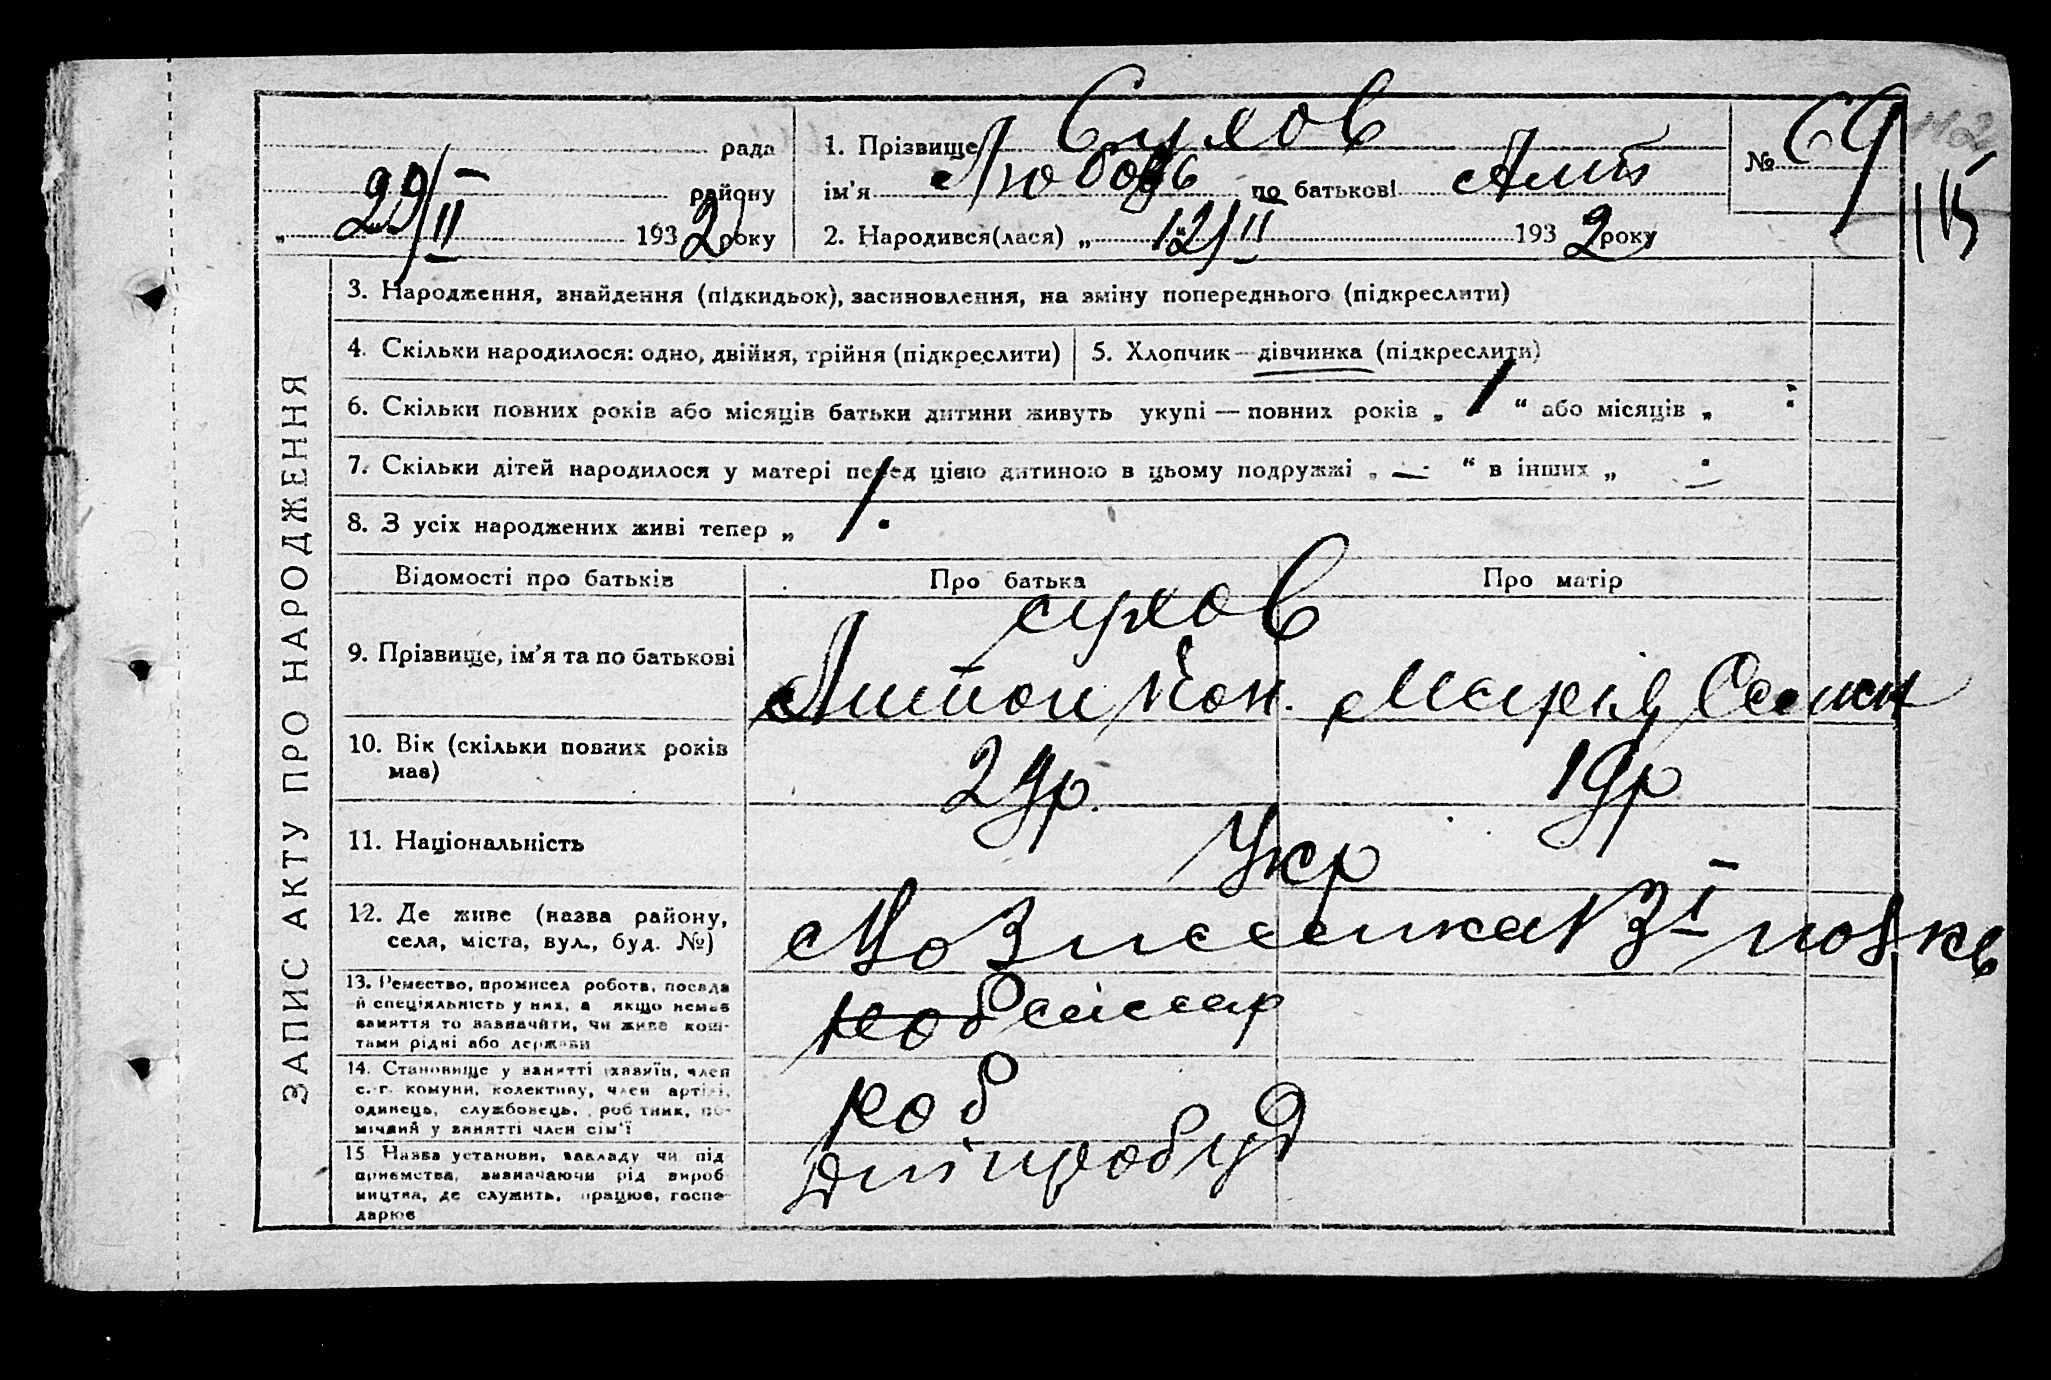 рада
району
29/II 1932 року
1. Прізвище Сухов
ім'я Любовь по батькові Ант
2. Народився(лася) „ 12/II 1932 року
№ 69
ЗАПИС АКТУ ПРО НАРОДЖЕННЯ
3. Народження, знайдення (підкидьок), засиновлення, на зміну попереднього (підкреслити)
4. Скільки народилося: одно, двійня, трійня (підкреслити) 5. Хлопчик — дівчинка (підкреслити)
6. Скільки повних років або місяців батьки дитини живуть укупі — повних років „ 1 “ або місяців „
7. Скільки дітей народилося у матері перед цією дитиною в цьому подружжі „ — “ в інших „ —
8. З усіх народжених живі тепер „ 1.
Відомості про батьків Про батька Про матір
9. Прізвище, ім'я та по батькові Сухов
Антон Кон. Марія Семен
10. Вік (скільки повних років має) 29р. 19р
11. Національність Укр
12. Де живе (назва району,
села, міста, вул., буд. №)
13. Ремество, промисел робота, посада
й спеціяльність у них, а якщо немає
заняття то зазначити, чи живе кош-
тами рідні або держави
14. Становище у занятті (хазяїн, член
с.-г. комуни, колективу, член артілі,
одинець, службовець, робітник, по-
мічний у занятті член сім'ї
роб
15 Назва установи, закладу чи під
приємства, визначаючи рід вироб
ництва, де служить, працює, госпо-
дарює
Дніпробуд